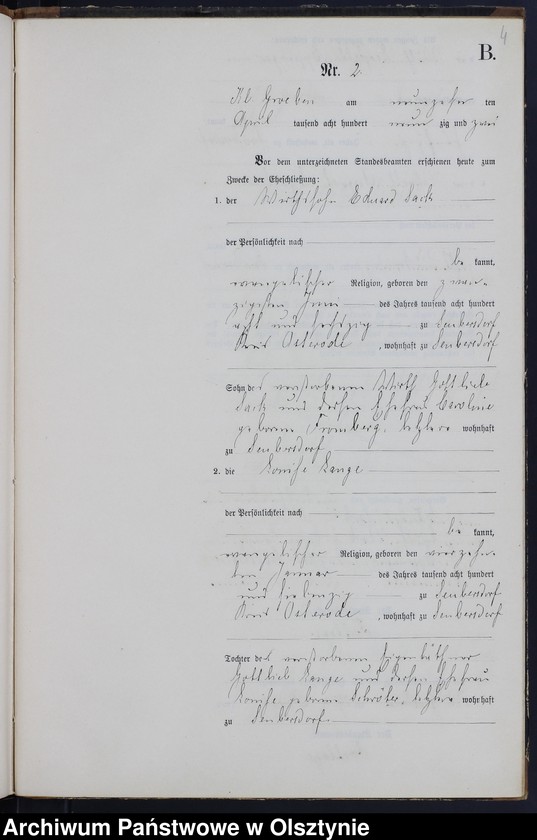 4
B.
Nr. 2.
Kl. Groeben am neunzehn ten
April tausend acht hundert neun zig und zwei
Vor dem unterzeichneten Standesbeamten erschienen heute zum
Zwecke der Eheschließung:
1. der Wirthssohn Eduard Sack
der Persönlichkeit nach
be kannt,
evangelischer Religion, geboren den zwan-
zigsten Juni des Jahres tausend acht hundert
acht und sechszig zu Seubersdorf
Kreis Osterode, wohnhaft zu Seubersdorf
Sohn des verstorbenen Wirth Gottlieb
Sack und dessen Ehefrau Caroline
geborene Fromberg, letztere wohnhaft
zu Seubersdorf
2. die Louise Lange
der Persönlichkeit nach
be kannt,
evangelischer Religion, geboren den vierzehn-
ten Januar des Jahres tausend acht hundert
und siebenzig zu Seubersdorf
Kreis Osterode, wohnhaft zu Seubersdorf
Tochter des verstorbenen Eigenkäthner
Gottlieb Lange und dessen Ehefrau
Louise geborene letztere wohnhaft
zu Seubersdorf.
Archiwum Państwowe w Olsztynie